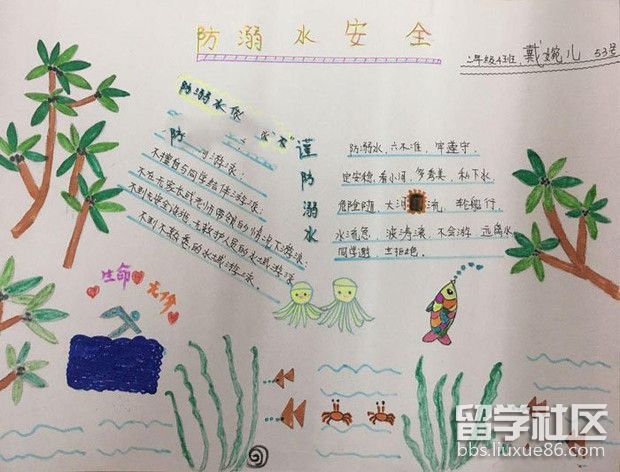 防溺水安全
二年级4班 戴婉儿 53号
防溺水保
"六不"
不擅自与同学结伴游泳;
不在无家长或老师带领的情况下游泳;
不到无安全设施、无救护人员的水域游泳
不到不熟悉的水域游泳.
谨防溺水
防溺水,六不准,牢遵守,
史安稳,看小河,多秀美,私下水,
危险随,大河 流,轮船行,
水流急,波涛滚,不会游,远离水
同学邀,去拒绝.
生命
无价
留学社区
bbs.liuxue86.com